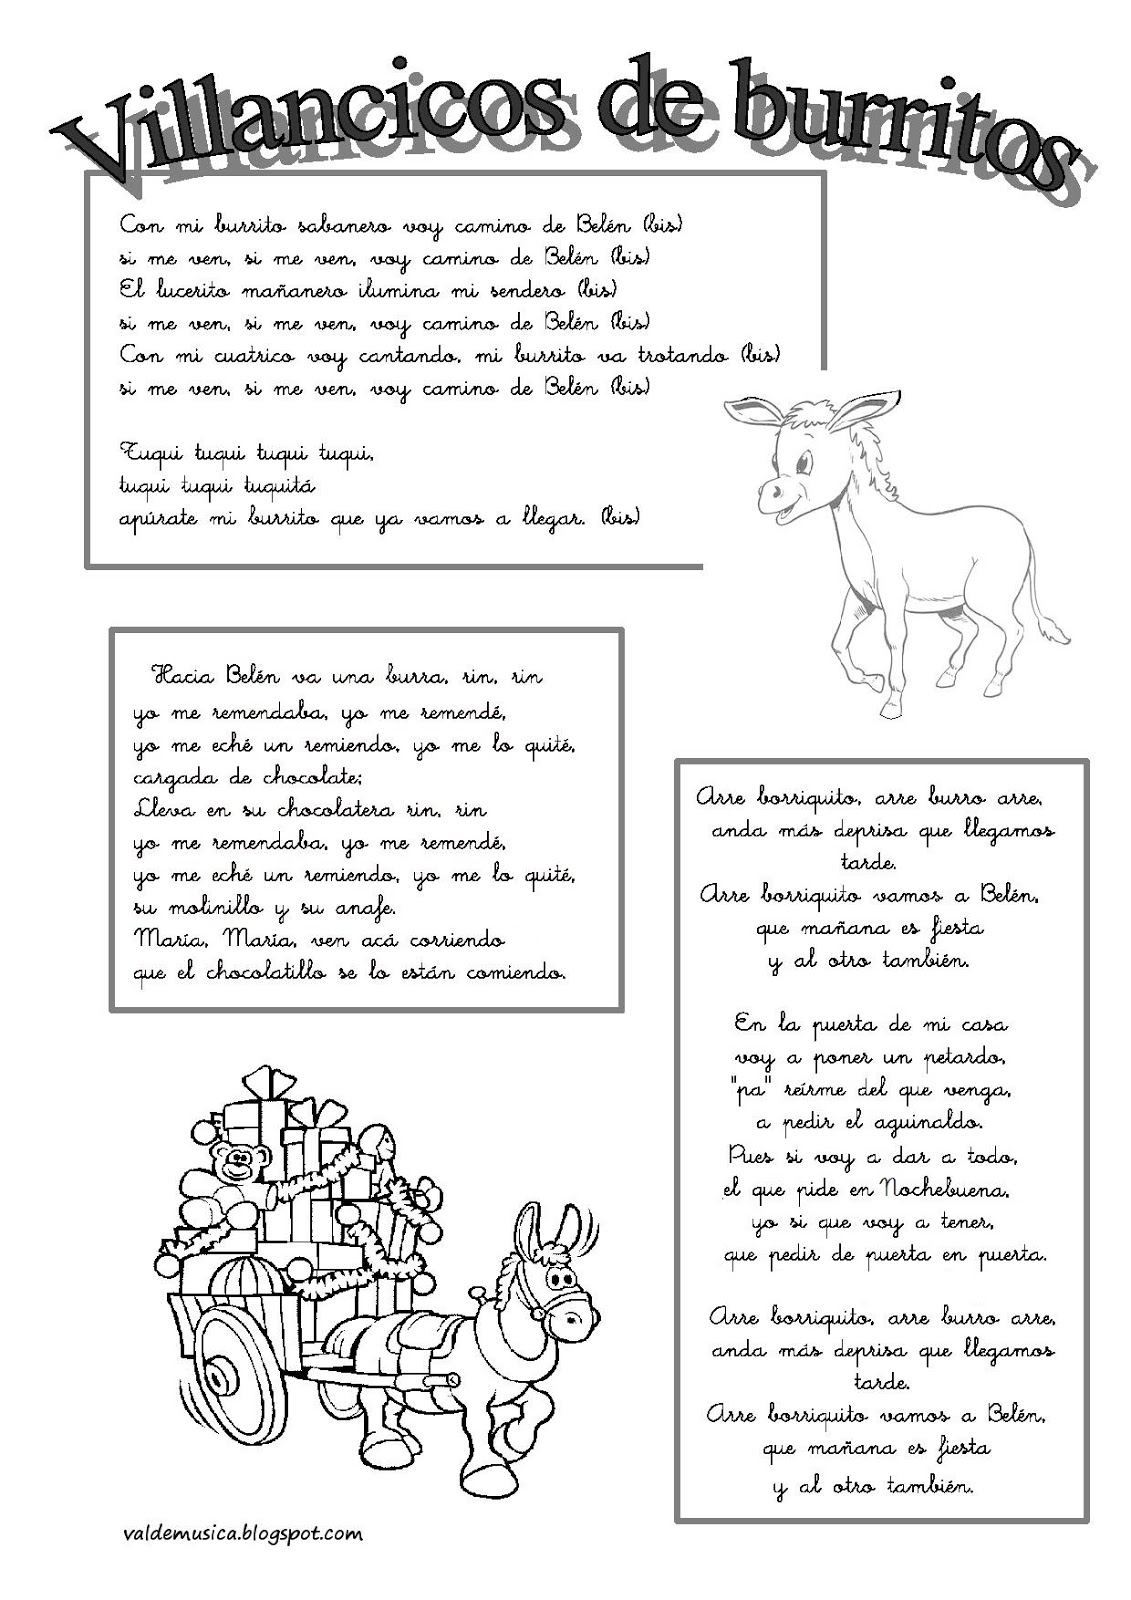 Villancicos de burritos
Con mi burrito sabanero voy camino de Belén (bis)
si me ven, si me ven, voy camino de Belén (bis)
El lucerito mañanero ilumina mi sendero (bis)
si me ven, si me ven, voy camino de Belén (bis)
Con mi cuatrico voy cantando, mi burrito va trotando (bis)
si me ven, si me ven, voy camino de Belén (bis)
Tuqui tuqui tuqui tuqui,
tuqui tuqui tuquitá
apúrate mi burrito que ya vamos a llegar. (bis)
Hacia Belén va una burra, rin, rin
yo me remendaba, yo me remendé,
yo me eché un remiendo, yo me lo quité,
cargada de chocolate;
Lleva en su chocolatera rin, rin
yo me remendaba, yo me remendé,
yo me eché un remiendo, yo me lo quité,
su molinillo y su anafe.
María, María, ven acá corriendo
que el chocolatillo se lo están comiendo.
Arre borriquito, arre burro arre,
anda más deprisa que llegamos
tarde.
Arre borriquito vamos a Belén,
que mañana es fiesta
y al otro también.
En la puerta de mi casa
voy a poner un petardo,
"pa" reírme del que venga,
a pedir el aguinaldo.
Pues si voy a dar a todo,
el que pide en Nochebuena,
yo si que voy a tener,
que pedir de puerta en puerta.
Arre borriquito, arre burro arre,
anda más deprisa que llegamos
tarde.
Arre borriquito vamos a Belén,
que mañana es fiesta
y al otro también.
valdemusica.blogspot.com